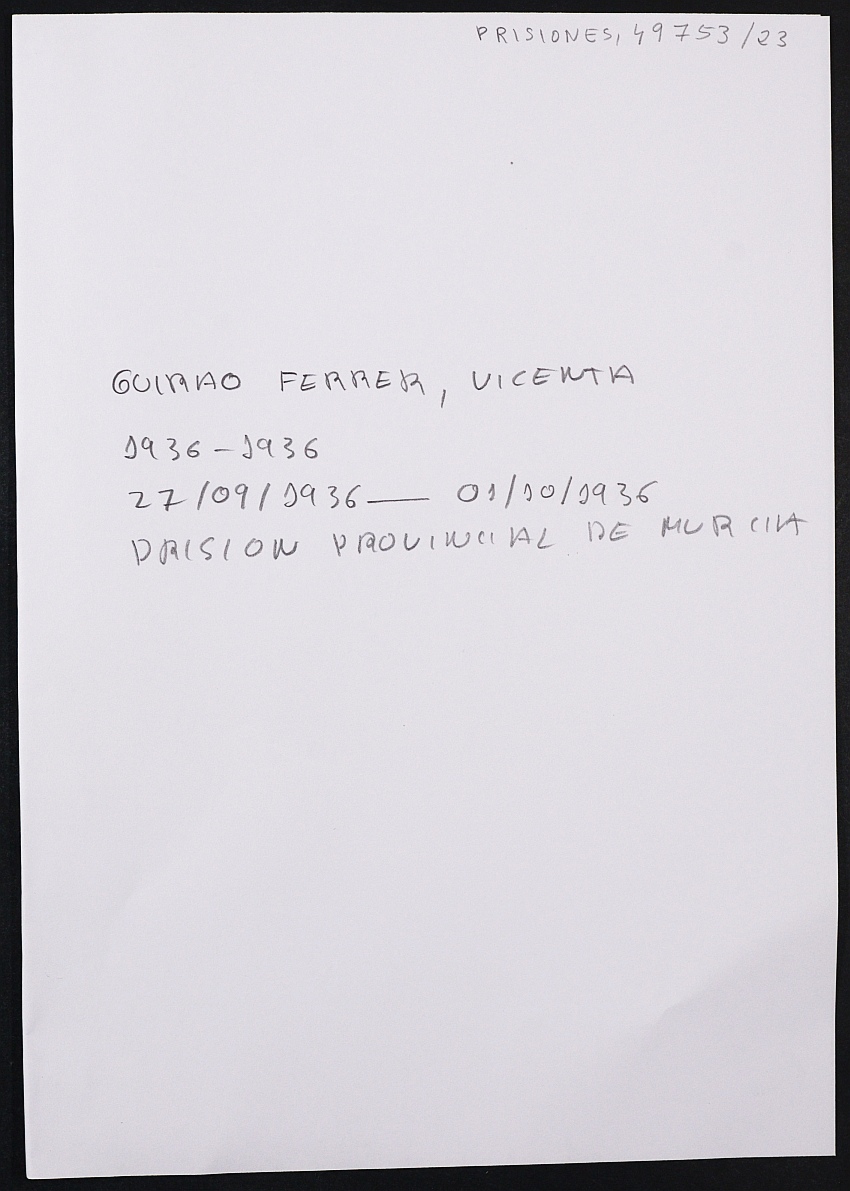 PRISIONES, 49753/23
GUIRAO FERRER, VICENTA
1936-1936
27/09/1936 — 01/10/1936
PRISION PROVINCIAL DE MURCIA